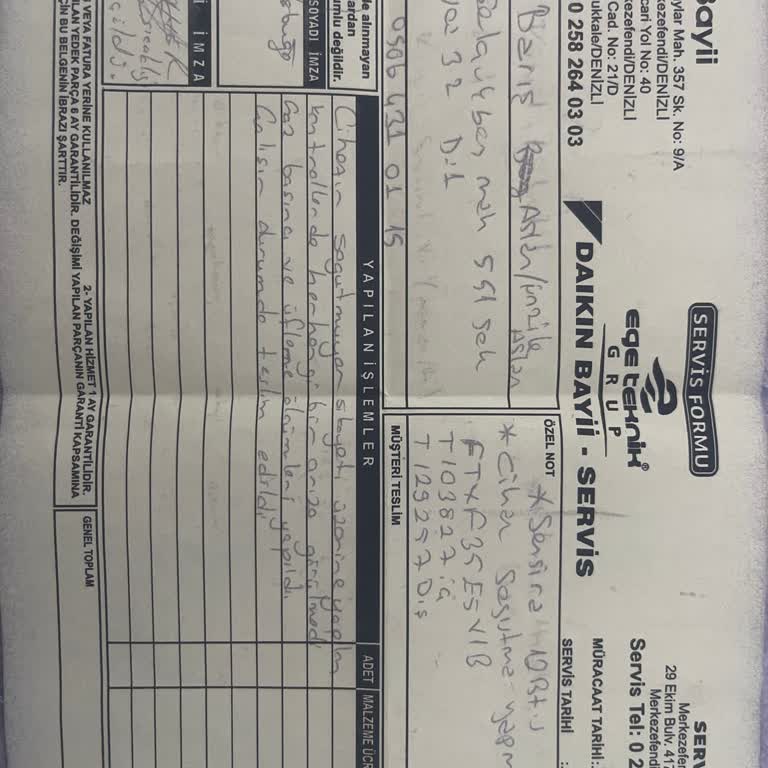 SERVİS FORMU
Bayii
ylar Mah. 357 Sk. No: 9/A
kezefendi/DENİZLİ
cari Yol No: 40
kezefendi/DENİZLİ
Cad. No: 21/D
ukkale/DENİZLİ
0 258 264 03 03
ege teknik®
GRUP
DAIKIN BAYİİ - SERVİS
SERV
29 Ekim Bulv. 417
Merkezefen
Merkezefendi
Servis Tel: 0 2
MÜRACAAT TARİHİ:
SERVİS TARİHİ :
Barış Aslan/
Aslan
mah 551 sok
32 D:1
0506 431 01 15
ÖZEL NOT
*
* Cihaz soğutma yapm
FTXF35E5V1B
T103827 iç
T129297 Dış
MÜŞTERİ TESLİM
YAPILAN İŞLEMLER
ADET
MALZEME ÜCR
Cihazın soğutmuyor şikayeti üzerine yapılan
kontrollerde herhangi bir arıza görülmedi
Gaz basıncı ve üfleme ölçümleri yapıldı.
Çalışır durumda teslim edildi
de alınmayan
ardan
umlu değildir.
SOYADI İMZA
İ İMZA
VEYA FATURA YERİNE KULLANILMAZ
LAN YEDEK PARÇA 6 AY GARANTİLİDİR. DEĞİŞİMİ YAPILAN PARÇANIN GARANTİ KAPSAMINA
ÇİN BU BELGENİN İBRAZI ŞARTTIR.
2- YAPILAN HİZMET 1 AY GARANTİLİDİR.
GENEL TOPLAM